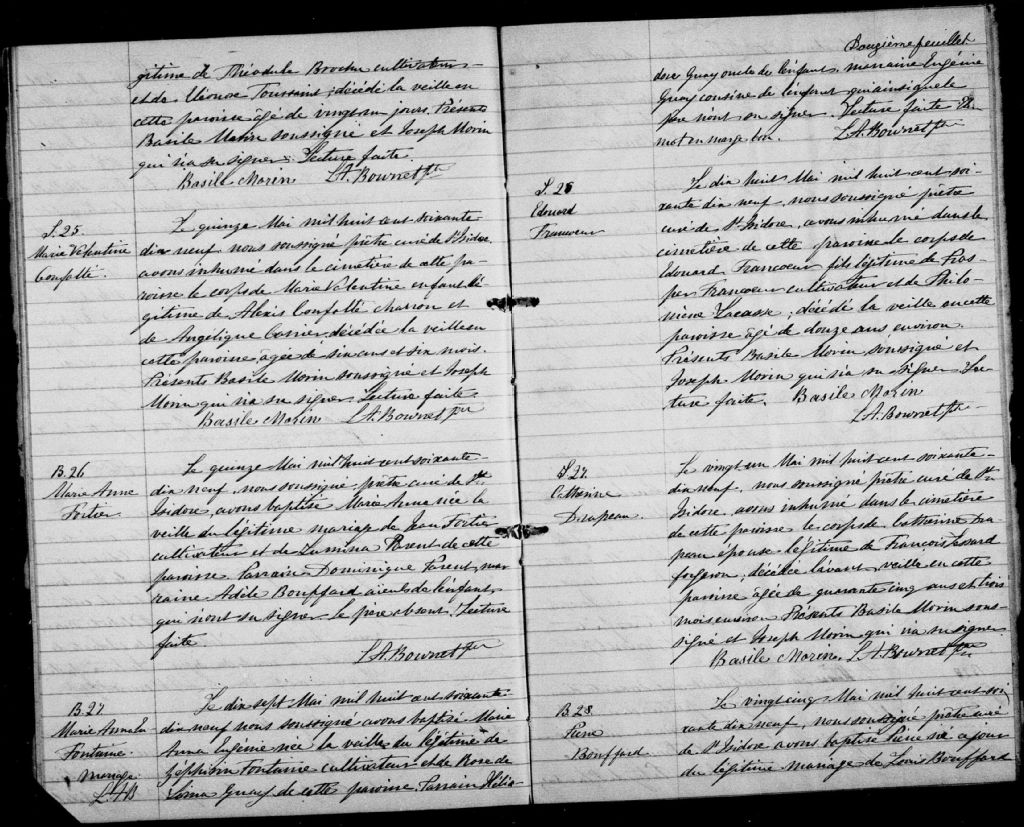 gitime de Théodule Brochu cultivateur
et de Léonose Toussaint; décédé la veille en
cette paroisse âgé de vingt un jours. Présents
Basile Morin soussigné et Joseph Morin
qui n'a su signer. Lecture faite.
Basile Morin L.A. Bournet ptre
S. 25.
Marie Valentine
Coufotte.
Le quinze Mai mil huit cent soixante
dix neuf nous soussigné prêtre curé de St Isidore
avons inhumé dans le cimetière de cette pa-
roisse le corps de Marie Valentine enfant lé
gitime de Alexis Confotte charron et
de Angélique Carrier, décédée la veille en
cette paroisse, âgée de six ans et six mois.
Présents Basile Morin soussigné et Joseph
Morin qui n'a su signer. Lecture faite.
Basile Morin L.A. Bournet ptre
B. 26
Marie Anne
Fortier.
Le quinze Mai mil huit cent soixante
dix neuf, nous soussigné, prêtre curé de St
Isidore, avons baptisé Marie Anna née la
veille du légitime mariage de Jean Fortier
cultivateur et de Zumina Parent de cette
paroisse. Parrain Dominique Parent, mar
raine Adèle Bouffard aieuls de l'enfant
qui n'ont su signer. le père absent. Lecture
faite
L.A. Bournet ptre
B. 27
Marie Anna E
Fontaine.
mariage
L.A.B
Le dix sept Mai mil huit cent soixante
dix neuf nous soussigné avons baptisé Marie
Anna Eugénie née la veille du légitime de
Zéphirin Fontaine cultivateur et de Rose de
Lima Guay de cette paroisse. Parrain Hélio-
Douzième feuillet
dore Guay oncle de l'enfant, marraine Eugénie
Guay cousine de l'enfant qui ainsi que le
père n'ont su signer. Lecture faite. Un
mot en marge bon. L.A. Bournet ptre
S. 26
Edouard
Francoeur
Le dix huit Mai mil huit cent soi-
xante dix neuf, nous soussigné prêtre
curé de St Isidore, avons inhumé dans le
cimetière de cette paroisse le corps de
Edouard Francoeur fils légitime de Pros-
per Francoeur cultivateur et de Philo-
mène Lacasse; décédé la veille en cette
paroisse âgé de douze ans environ.
Présents Basile Morin soussigné et
Joseph Morin qui n'a su signer. Lec-
ture faite. Basile Morin
L.A. Bournet ptre
S 27.
Catherine
Drapeau.
Le vingt un Mai mil huit cent soixante-
dix neuf, nous soussigné prêtre curé de St
Isidore, avons inhumé dans le cimetière
de cette paroisse le corps de Catherine Dra-
peau épouse légitime de François Tessard
forgeron, décédée l'avant veille en cette
paroisse âgée de quarante cinq ans et trois
mois environ Présents Basile Morin sous-
signé et Joseph Morin qui n'a su signer.
Basile Morin L.A. Bournet ptre
B. 28
Pierre
Bouffard
Le vingt cinq Mai mil huit cent soi-
xante dix neuf, nous soussigné prêtre curé
de St Isidore avons baptisé Pierre né ce jour
du légitime mariage de Louis Bouffard